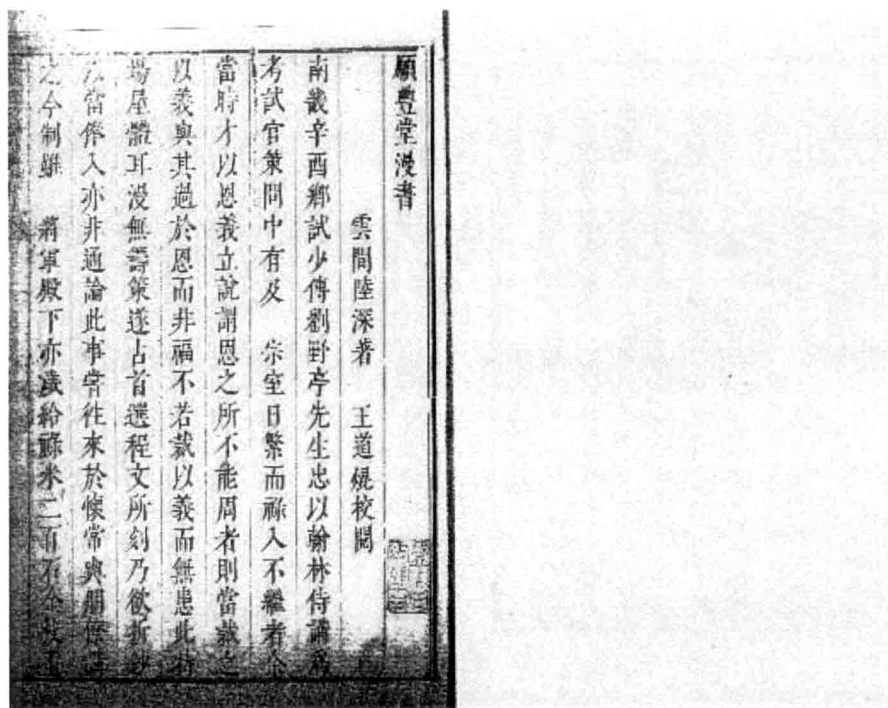 願豐堂漫書
雲間陸深著　王道焜校閱
南畿辛酉鄉試少傅劉野亭先生忠以翰林侍講爲
考試官策問中有及　宗室日繁而祿入不繼者余
當時才以恩義立說謂恩之所不能周者則當裁之
以義與其過於恩而非福不若裁以義而無患此特
場屋體耳漫無籌策遂占首選程文所刻乃欲折鈔
當俸入亦非通論此事嘗往來於懷常與朋僚
之今制雖　將軍殿下亦歲給祿米二百石余